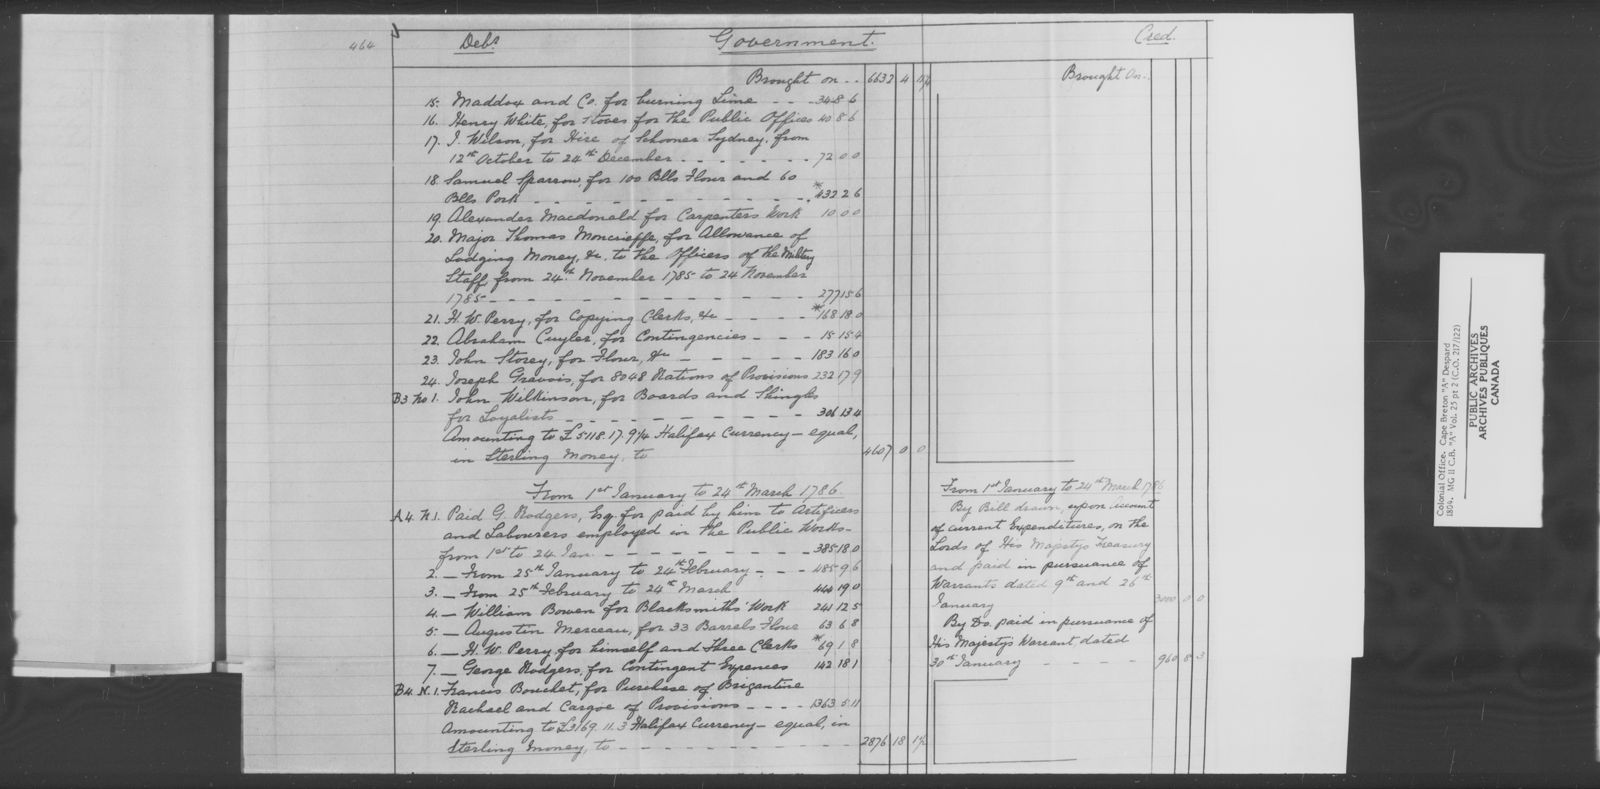 464
Debs.
Government.
Cred.
Brought on - - 6632 4 11¾
Brought On -
15. Maddox and Co. for burning Lime - - - 34 8 6
16. Henry White, for Stoves for the Public Offices 40 8 6
17. J. Wilson, for Hire of Schooner Sydney, from
12th October to 24th December - - - - - - - 72 0 0
18. Samuel Sparrow, for 100 Blls Flour and 60
Blls Pork - - - - - - - - - - - *432 2 6
19. Alexander Macdonald for Carpenters Work 10 0 0
20. Major Thomas Moncrieffe, for Allowance of
Lodging Money, &c. to the Officers of the Military
Staff, from 24th November 1785 to 24 November
1785 - - - - - - - - - - - - 277 15 6
21. H. W. Perry, for Copying Clerks, &c - - - - *168 18 0
22. Abraham Cuyler, for Contingencies - - - 15 15 4
23. John Storey, for Flour, &c - - - - - 183 16 0
24. Joseph Gravois, for 8048 Rations of Provisions 232 17 9
B3 No 1. John Wilkinson, for Boards and Shingles
for Loyalists - - - - - - - - - 306 13 4
Amounting to £5118. 17. 9¼ Halifax Currency - equal,
in Sterling Money, to 4607 0 0
From 1st January to 24th March 1786.
A4. N. 1. Paid G. Rodgers, Esq. for paid by him to Artificers
and Labourers employed in the Public Works -
from 1st to 24. Jan. - - - - - - - - 385 18 0
2. - From 25th January to 24th February - - - 485 9 6
3. - From 25th February to 24th March 444 19 0
4. - William Bowen for Blacksmiths' Work 241 12 5
5. - Augustin Merceau, for 33 Barrels Flour 63 6 8
6. - H. W. Perry for himself and three Clerks *69 1 8
7. - George Rodgers, for Contingent Expences 142 18 1
B4. N. 1. Francis Bouchet, for Purchase of Brigantine
Rachael and Cargoe of Provisions - - - - 1363 5 11
Amounting to £3169. 11. 3 Halifax Currency - equal, in
Sterling Money, to - - - - - - - - - 2876 18 1½
From 1st January to 24th March 1786
By Bill drawn, upon account
of current Expenditures, on the
Lords of His Majestys Treasury
and paid in pursuance of
Warrants dated 9th and 26th
January 3000 0 0
By Do. paid in pursuance of
His Majesty's Warrant, dated
30th January - - - - - 960 8 3
Colonial Office. Cape Breton "A" Despard
1804. MG 11 C.B. "A" Vol. 25 pt 2 (C.O. 217/122)
PUBLIC ARCHIVES
ARCHIVES PUBLIQUES
CANADA